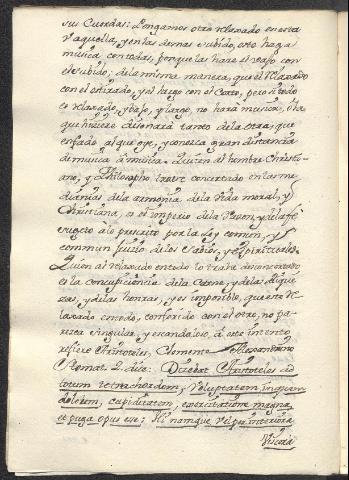 sus Cuerdas: Pongamos otro relaxado en esta
y aquella, y en las demas subido, esto hagа
musica con todas, porque las haze el baxo con
el subido; de la misma manera, que el relaxado
con el estirado, y el largo con el Corto, pero si todo
es relaxado, y baxo, y largo, no hará musica, o la
que hiziere disonará tanto de la otra, que
enfade al que oye, y conozca gran distancia
de musica à musica. Quien al hombre Christi-
ano, y Philosopho trae concertado en las me-
dianias de la armonia de la Vida moral, y
Christiana, es el imperio de la Razon, y de la fé
sugeto à lo prescrito por la Ley comun, y
commun juizio de los Sabios, y espirituales.
Quien al relaxado en todo le trahe desconcertado
es la concupiscencia de la Carne, y de las Rique
zas, y de las honras, y es imposible, que este re
laxado en todo, conferido con el otro, no pa-
rezca singular, y escandaloso, à este intento
refiere Aristoteles, Clemente Alexandrino
Stromat. 2. dice: Dicebat Aristoteles ad
totum tetrachordum; Voluptatem, inquam
dolorem, cupiditatem, exercitatione magna
et pugna opus esse; Hi namque vel per interiora
Viscera